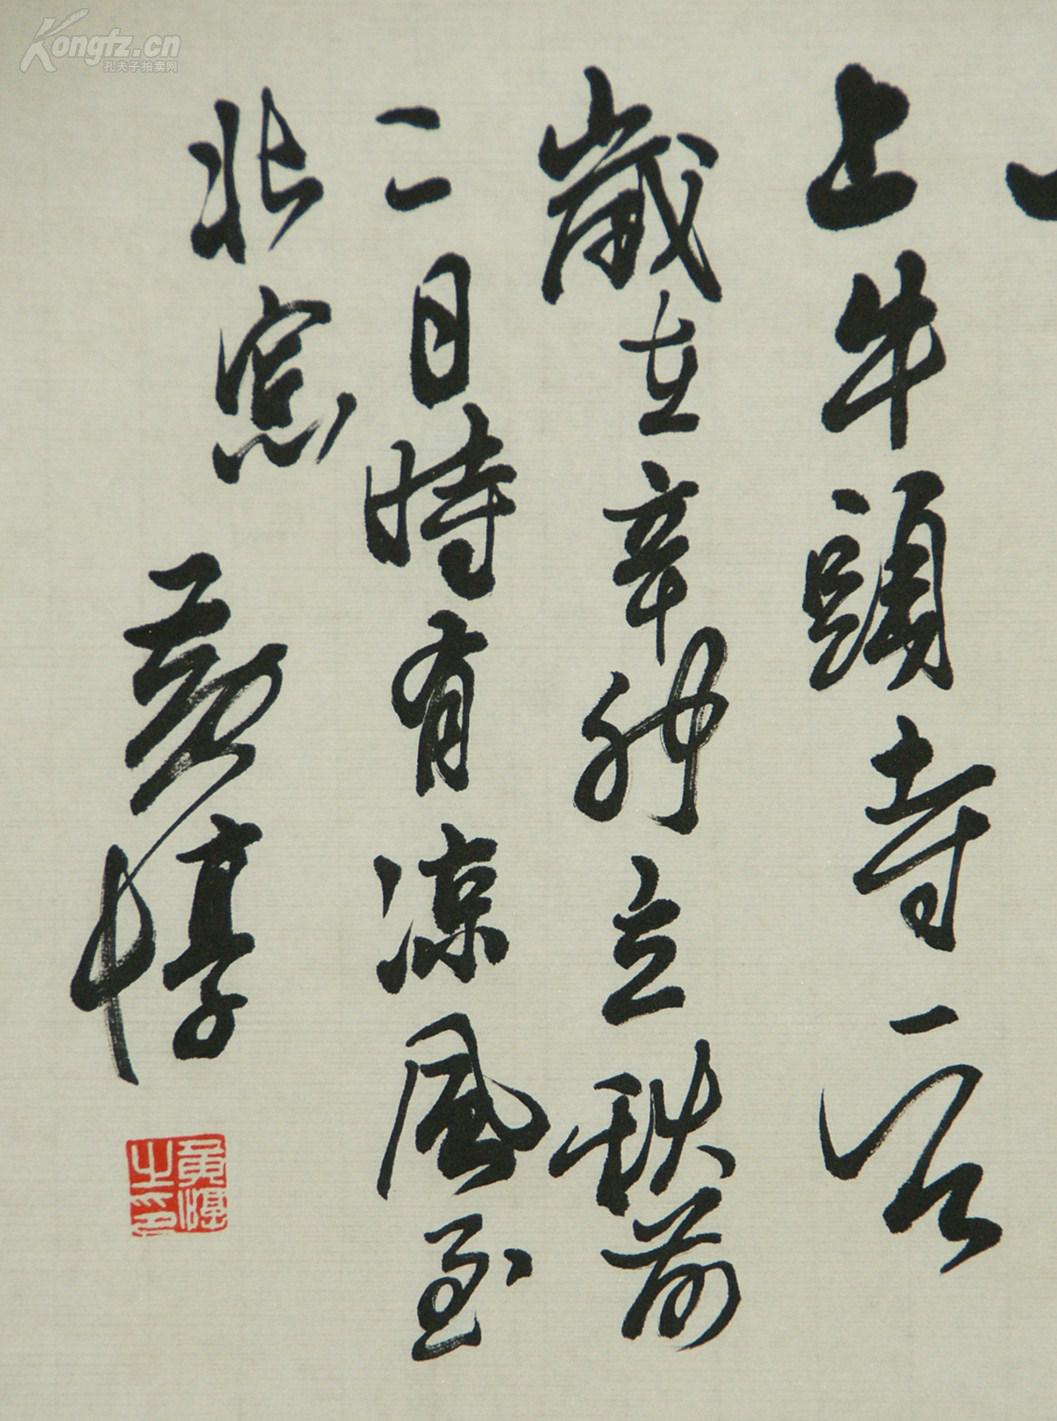 上牛頭寺一
歲在辛卯立秋前
二日時有涼風至
北窓 黄惇
黄惇之印
Kongfz.cn
孔夫子拍卖网